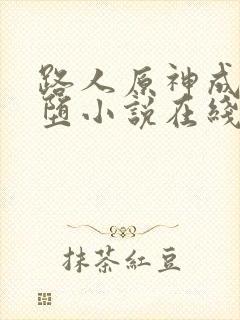 路人原神成
堕小說在綫
抹茶紅豆